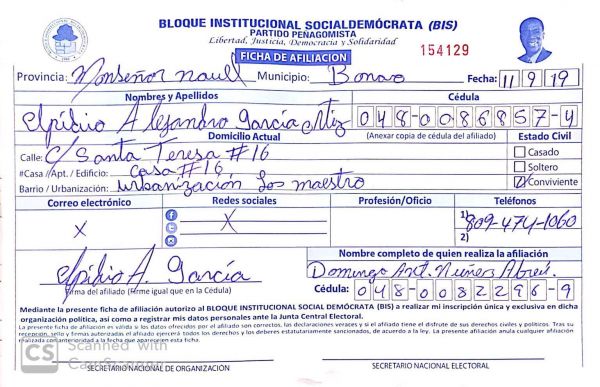 BLOQUE INSTITUCIONAL SOCIALDEMÓCRATA (BIS)
PARTIDO PENAGOMISTA
Libertad, Justicia, Democracia y Solidaridad
FICHA DE AFILIACION
154129
Provincia: Monseñor nouell Municipio: Bonao Fecha: 11 9 19
Nombres y Apellidos Cédula
Elpidio Alejandro García Ortiz 048-0086857-4
Domicilio Actual (Anexar copia de cédula del afiliado) Estado Civil
Calle: C/ Santa Teresa #16 Casado
#Casa /Apt. / Edificio: Casa #16 Soltero
Barrio / Urbanización: Urbanización Los maestro Conviviente
Correo electrónico Redes sociales Profesión/Oficio Teléfonos
X X 1) 809-474-1060
2)
Nombre completo de quien realiza la afiliación
Elpidio A. García Domingo Ant. Núñez Abreu
Firma del afiliado (Firme igual que en la Cédula) Cédula: 048-0082296-9
Mediante la presente ficha de afiliación autorizo al BLOQUE INSTITUCIONAL SOCIAL DEMÓCRATA (BIS) a realizar mi inscripción única y exclusiva en dicha
organización política, así como a registrar mis datos personales ante la Junta Central Electoral.
La presente ficha de afiliación es válida si los datos ofrecidos por el afiliado son correctos, las declaraciones veraces y si el afiliado tiene el disfrute de sus derechos civiles y políticos. Tras su
recepción, sello y firmas autorizadas el afiliado ejercerá todos los derechos y los deberes estatutariamente sancionados, de acuerdo a la ley. La presente afiliación anula cualquier afiliación
realizada con anterioridad a la fecha que aparece en esta ficha.
CS Scanned with
CamScanner
SECRETARIO NACIONAL DE ORGANIZACIÓN SECRETARIO NACIONAL ELECTORAL